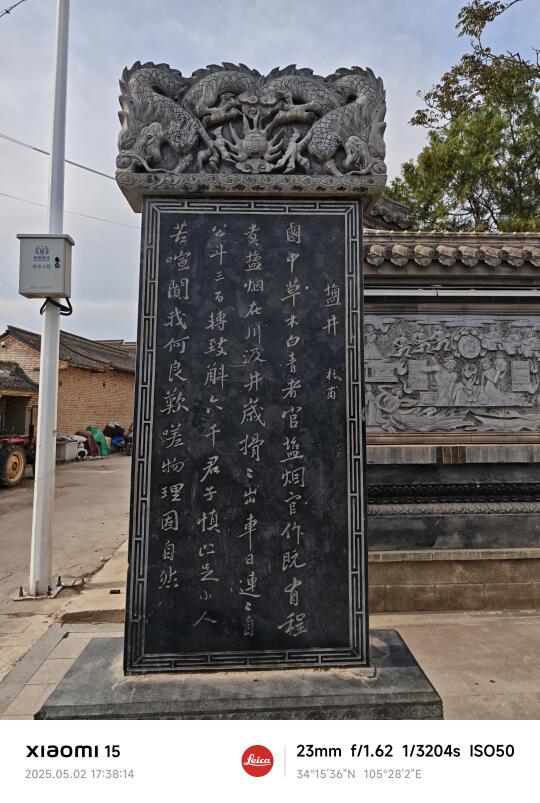 鹽井 杜甫
鹵中草木白青者官鹽烟官作既有程
煮鹽烟在川汲井歲搰〻出車日連〻自
公斗三百轉致斛六千君子慎止足小人
苦喧闐我何良歎嗟物理固自然
XIAOMI 15
2025.05.02 17:38:14
Leica
23mm f/1.62 1/3204s ISO50
34°15'36"N 105°28'2"E